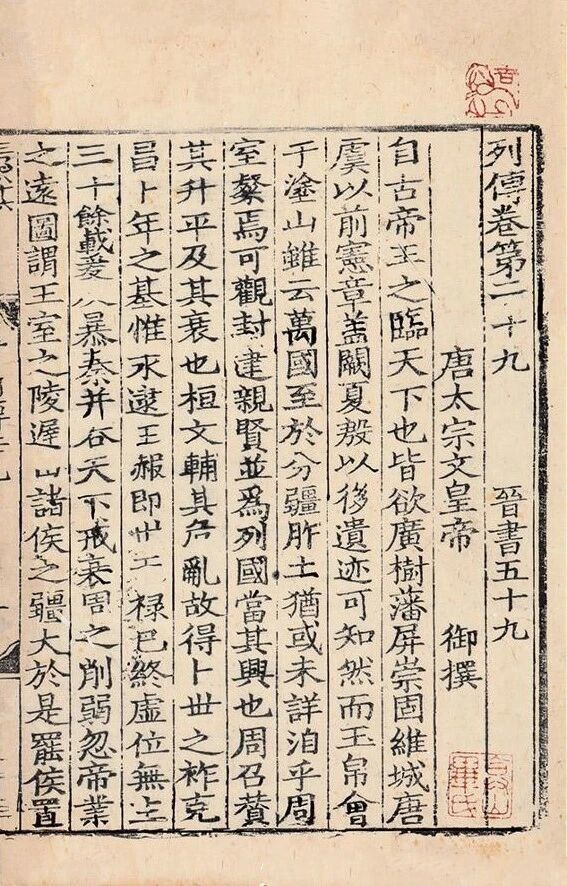 列傳卷第二十九 晉書五十九
唐太宗文皇帝 御撰
自古帝王之臨天下也皆欲廣樹藩屏崇固維城唐
虞以前憲章蓋闕夏殷以後遺迹可知然而玉帛會
于塗山雖云萬國至於分疆胙土猶或未詳洎乎周
室粲焉可觀封建親賢並爲列國當其興也周召賛
其升平及其衰也桓文輔其危亂故得卜丗之祚克
昌卜年之基惟永逮王赧即丗天禄已終虛位無主
三十餘載爰及暴秦并吞天下戒衰周之削弱忽帝業
之遠圖謂王室之陵遲由諸侯之彊大於是罷侯置